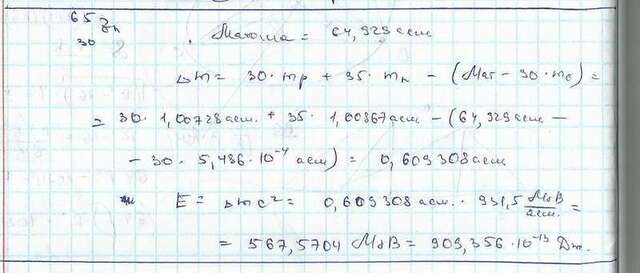 65
30 Zn . Mатома = 64,929 аем
Δm = 30·mp + 35·mn - (Mат - 30·me) =
= 30·1,00728 аем. + 35·1,00867 аем - (64,929 аем -
- 30·5,486·10⁻⁴ аем) = 0,609308 аем
E = Δmc² = 0,609308 аем · 931,5 МэВ/аем. =
= 567,5704 МэВ = 909,356·10⁻¹³ Дж.